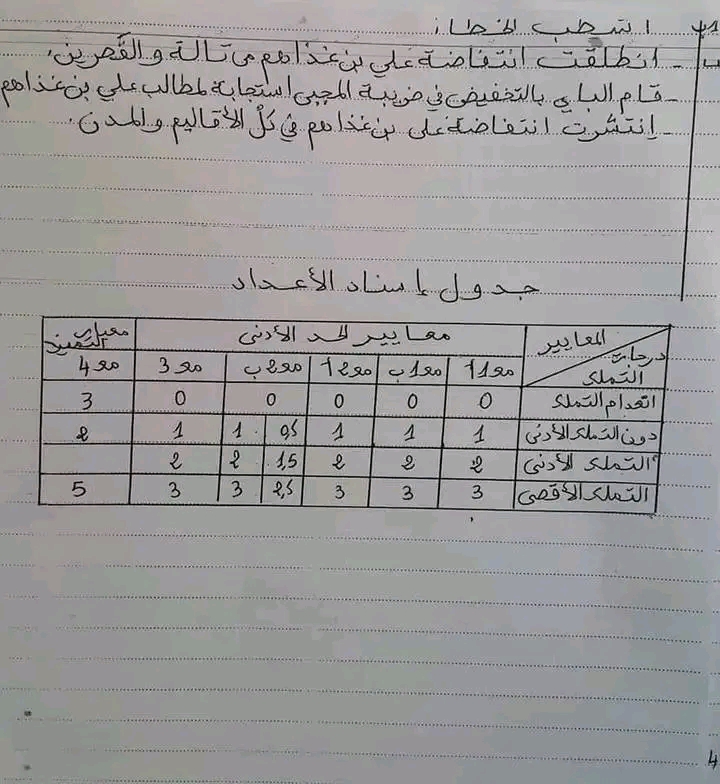 أشطب الخطأ:
- انطلقت انتفاضة علي بن غذاهم من تالة والقصرين.
- قام الباي بالتخفيض في ضريبة المجبى استجابة لمطالب علي بن غذاهم
- إنتشرت انتفاضة علي بن غذاهم في كلّ الأقاليم والمدن.
جدول إسناد الأعداد
المعايير درجات التملك | معايير الحد الأدنى | معيار التميز
مع 1 أ | مع 1 ب | مع 2 أ | مع 2 ب | مع 3 | مع 4
انعدام التملك | 0 | 0 | 0 | 0 | 0 | 3
دون التملك الأدنى | 1 | 1 | 1 | 0,5 | 1 | 1 | 2
التملك الأدنى | 2 | 2 | 2 | 1,5 | 2 | 2
التملك الأقصى | 3 | 3 | 3 | 2,5 | 3 | 3 | 5
4